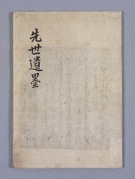 先世遺墨